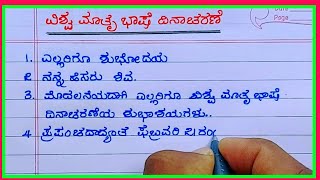 ವಿಶ್ವ ಮಾತೃ ಭಾಷೆ ದಿನಾಚರಣೆ
Page
1. ಎಲ್ಲರಿಗೂ ಶುಭೋದಯ
2 ನನ್ನ ಹೆಸರು ಶಿವ.
3. ಮೊದಲನೆಯದಾಗಿ ಎಲ್ಲರಿಗೂ ವಿಶ್ವ ಮಾತೃ ಭಾಷೆ
ದಿನಾಚರಣೆಯ ಶುಭಾಶಯಗಳು..
4 ಪ್ರಪಂಚದಾದ್ಯಂತ ಫೆಬ್ರುವರಿ